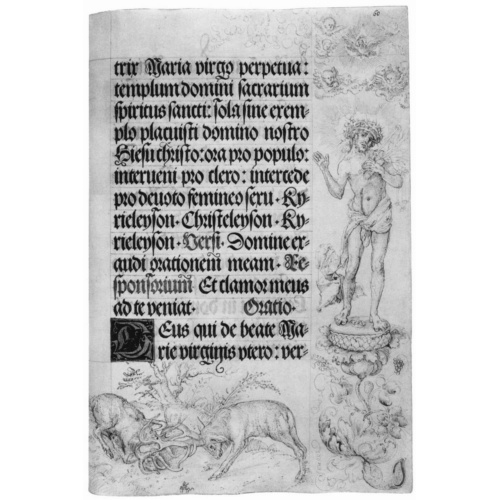 trix Maria virgo perpetua:
templum domini sacrarium
spiritus sancti: sola sine exem-
plo placuisti domino nostro
Hiesu christo: ora pro populo:
interueni pro clero: intercede
pro deuoto femineo sexu. Ky-
rieleyson. Christeleyson. Ky-
rieleyson. Versi. Domine ex-
audi orationem meam. Re-
sponsorium Et clamor meus
ad te veniat. Oratio.
DEus qui de beate Ma-
rie virginis vtero: ver-